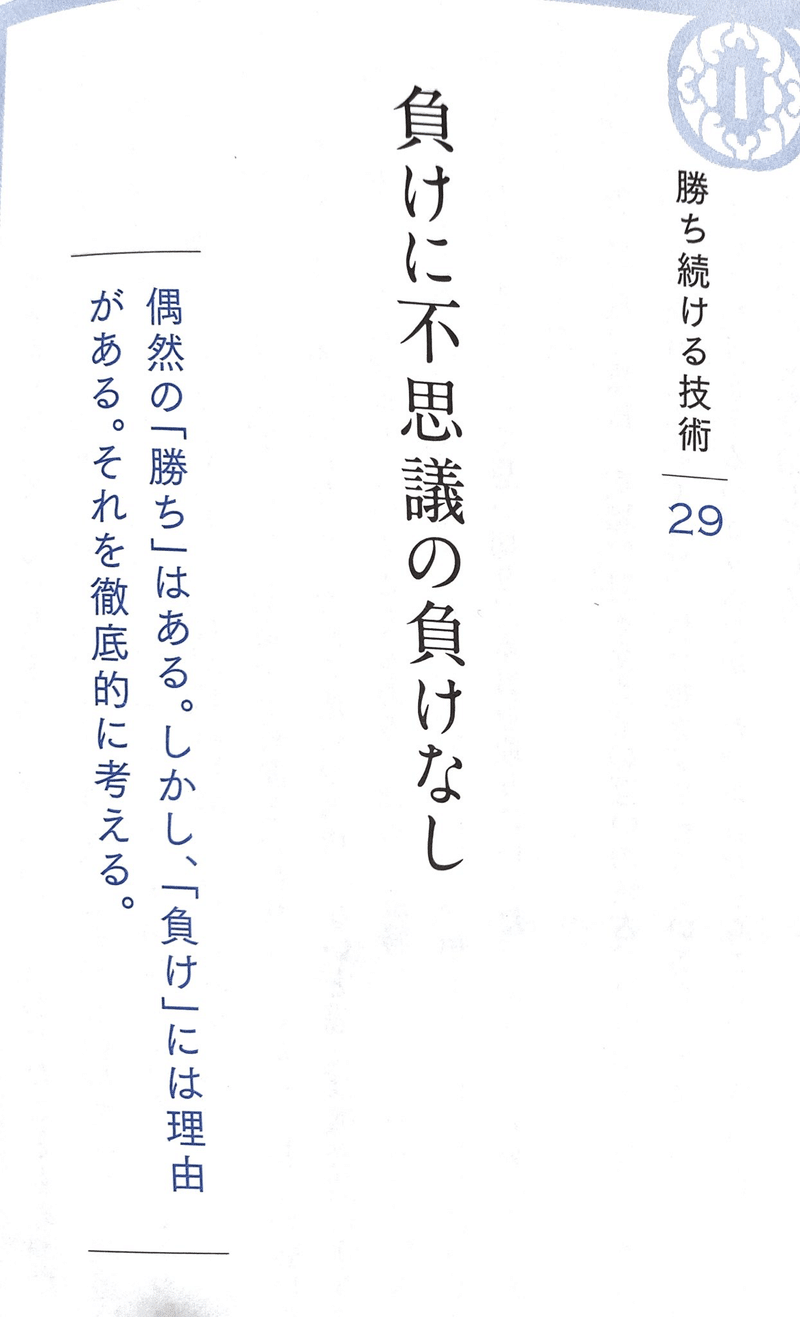 勝ち続ける技術
29
負けに不思議の負けなし
偶然の「勝ち」はある。しかし、「負け」には理由
がある。それを徹底的に考える。